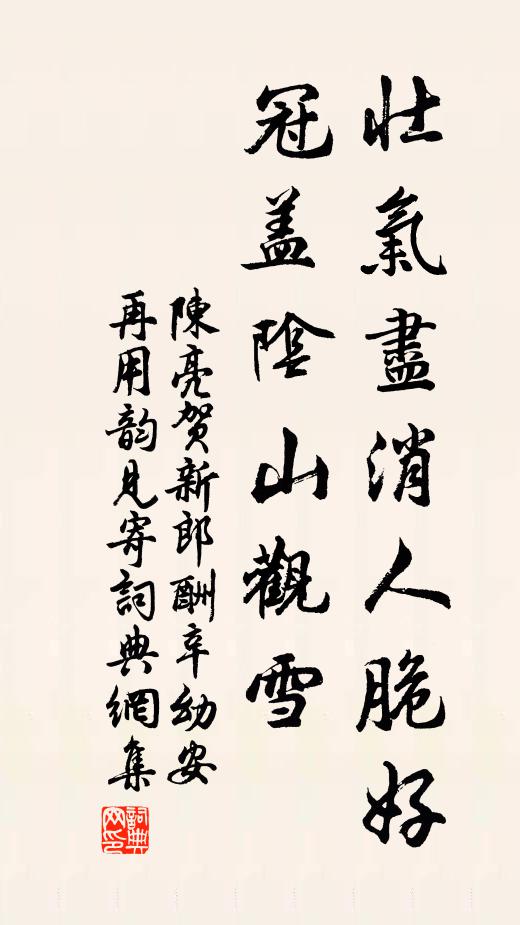 壯氣盡消人脆好
冠蓋陰山觀雪
陳亮賀新郎酬辛幼安
再用韵見寄詞典網集
詞典
网印